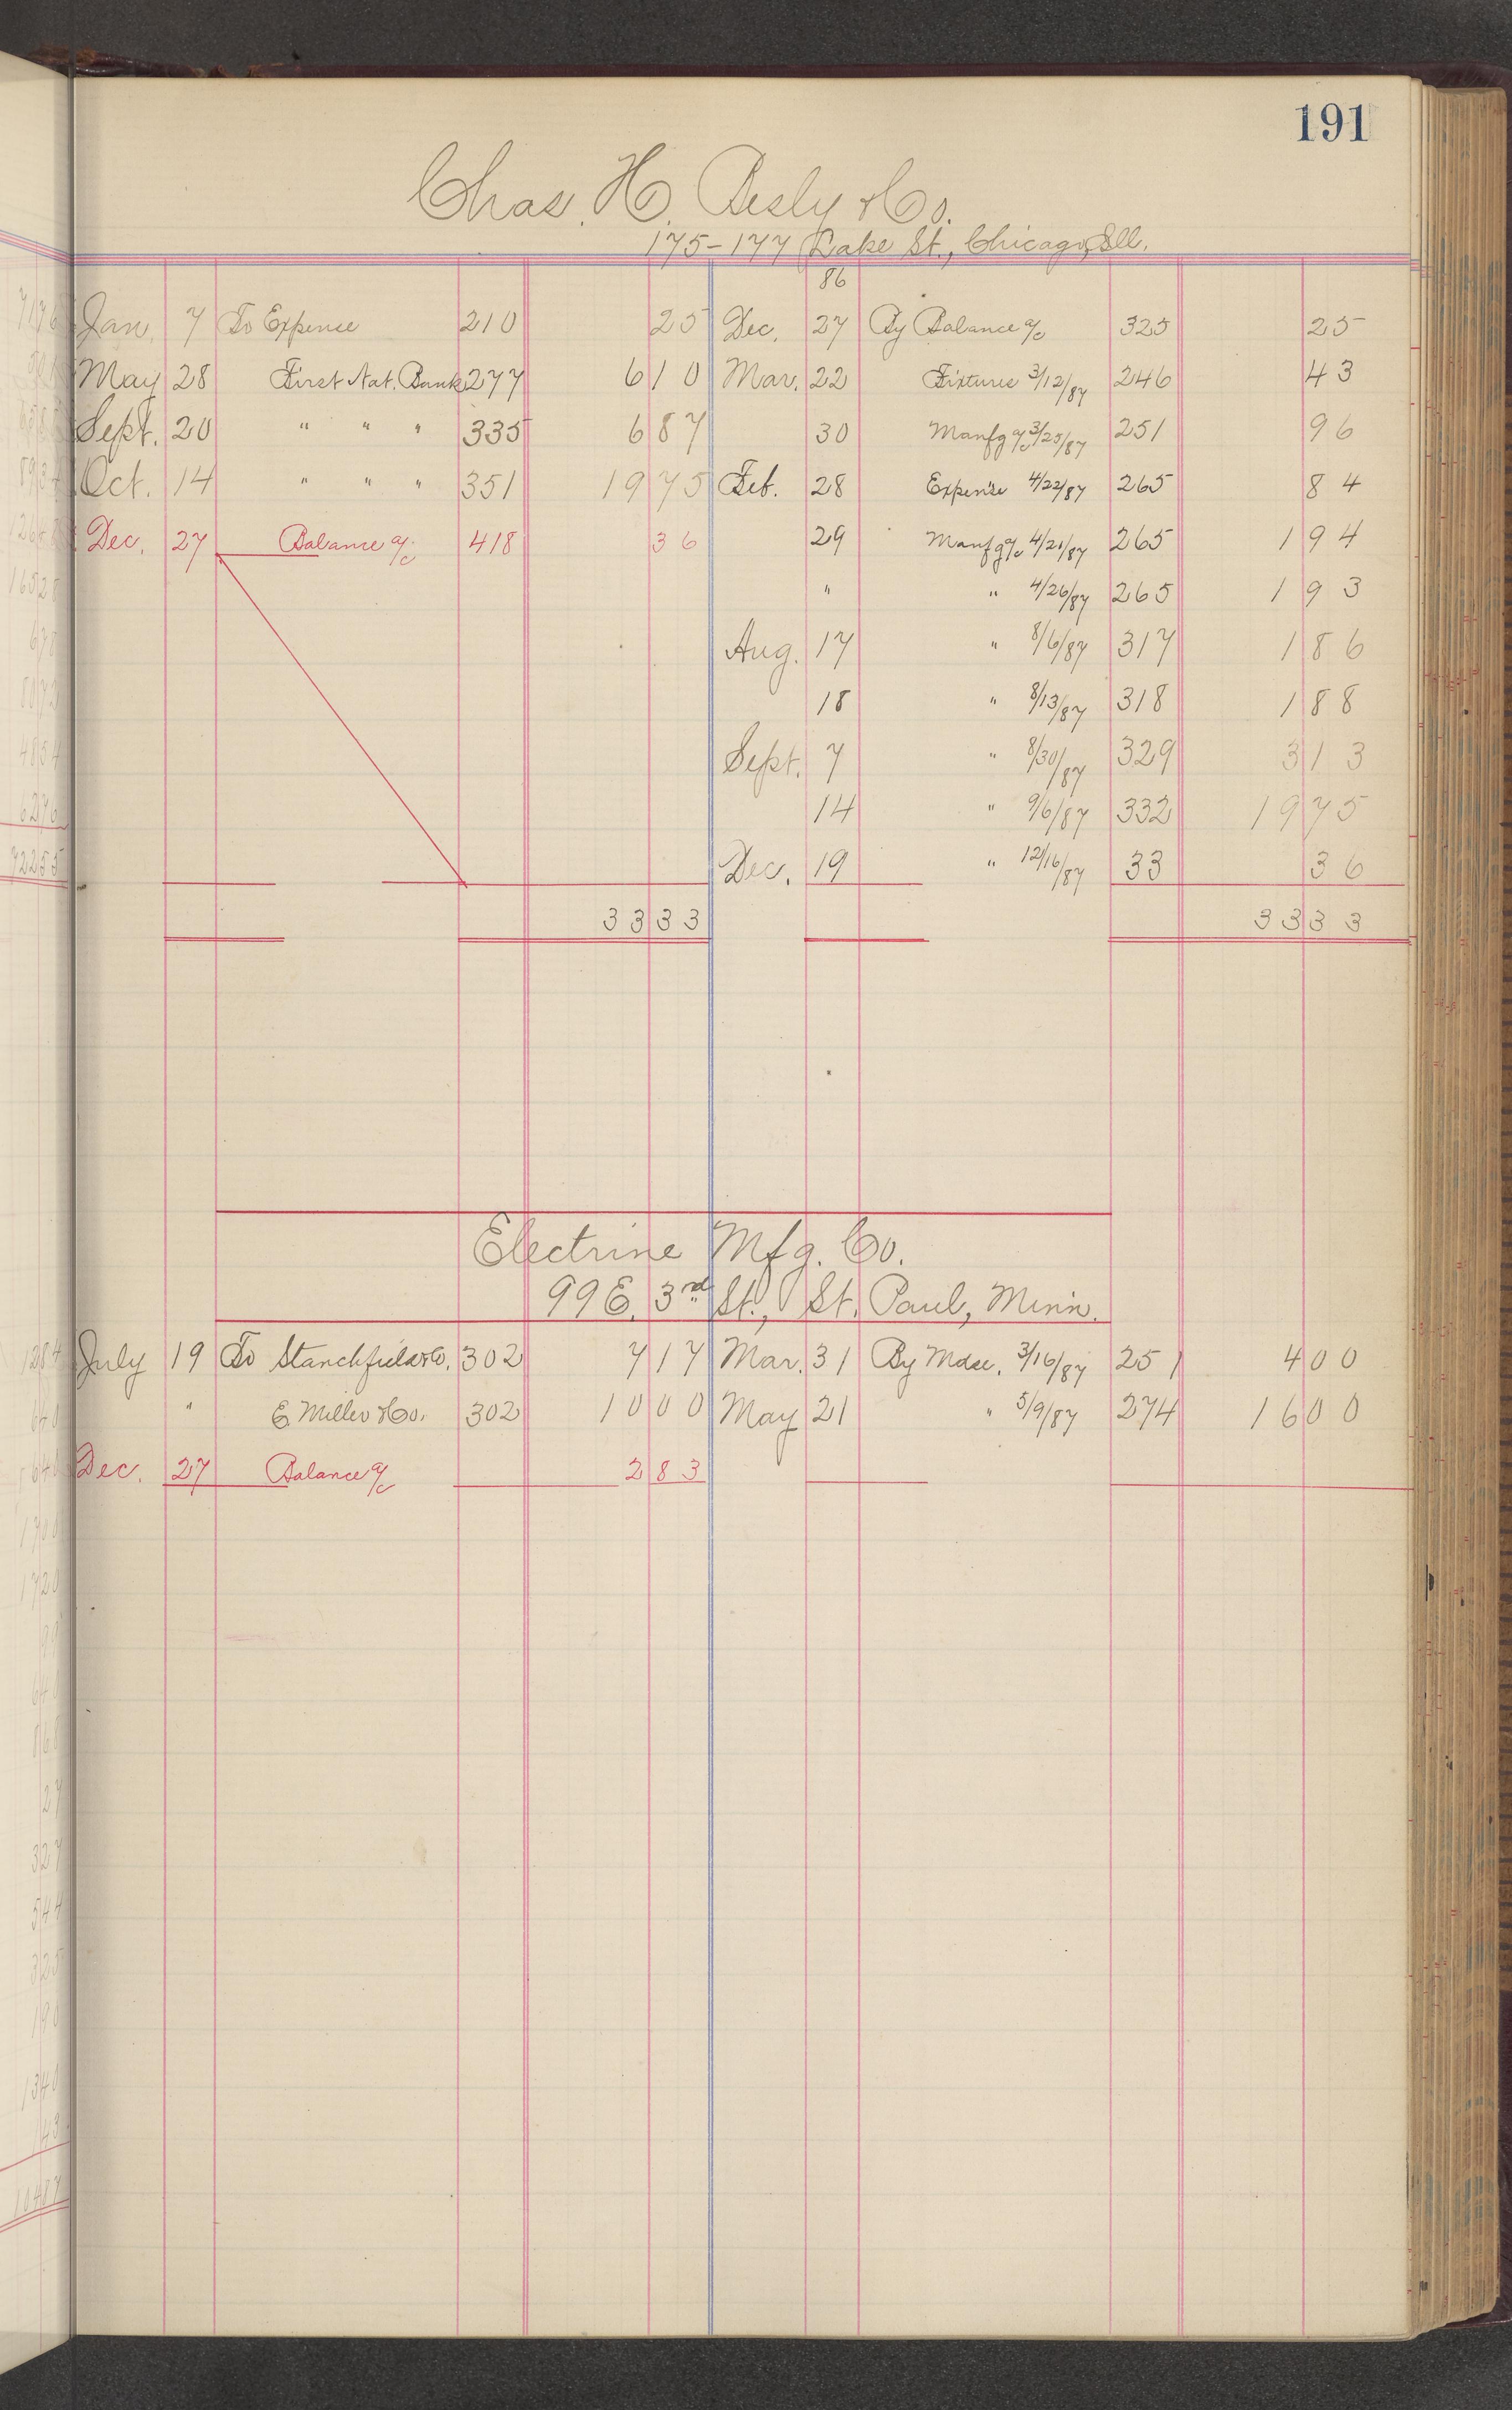 191
Chas. H. Besly & Co.
175-177 Lake St., Chicago, Ill.
86
Jan. 7 To Expense 210 25 Dec. 27 By Balance a/c 325 25
May 28 First Nat. Bank 277 6 10 Mar. 22 Fixtures 3/12/87 246 43
Sept. 20 " " " 335 6 87 30 Manfg a/c 3/25/87 251 96
Oct. 14 " " " 351 19 75 Feb. 28 Expense 4/22/87 265 84
Dec. 27 Balance a/c 418 36 29 Manfg a/c 4/21/87 265 1 94
" " 4/26/87 265 1 93
Aug. 17 " 8/6/87 317 1 86
18 " 8/13/87 318 1 88
Sept. 7 " 8/30/87 329 3 13
14 " 9/6/87 332 19 75
Dec. 19 " 12/16/87 33 36
33 33 33 33
Electrine Mfg. Co.
99 E. 3rd St., St. Paul, Minn.
July 19 To Stanchfield & Co. 302 7 17 Mar. 31 By Mdse. 3/16/87 251 4 00
" E Miller & Co. 302 10 00 May 21 " 5/9/87 274 16 00
Dec. 27 Balance a/c 2 83